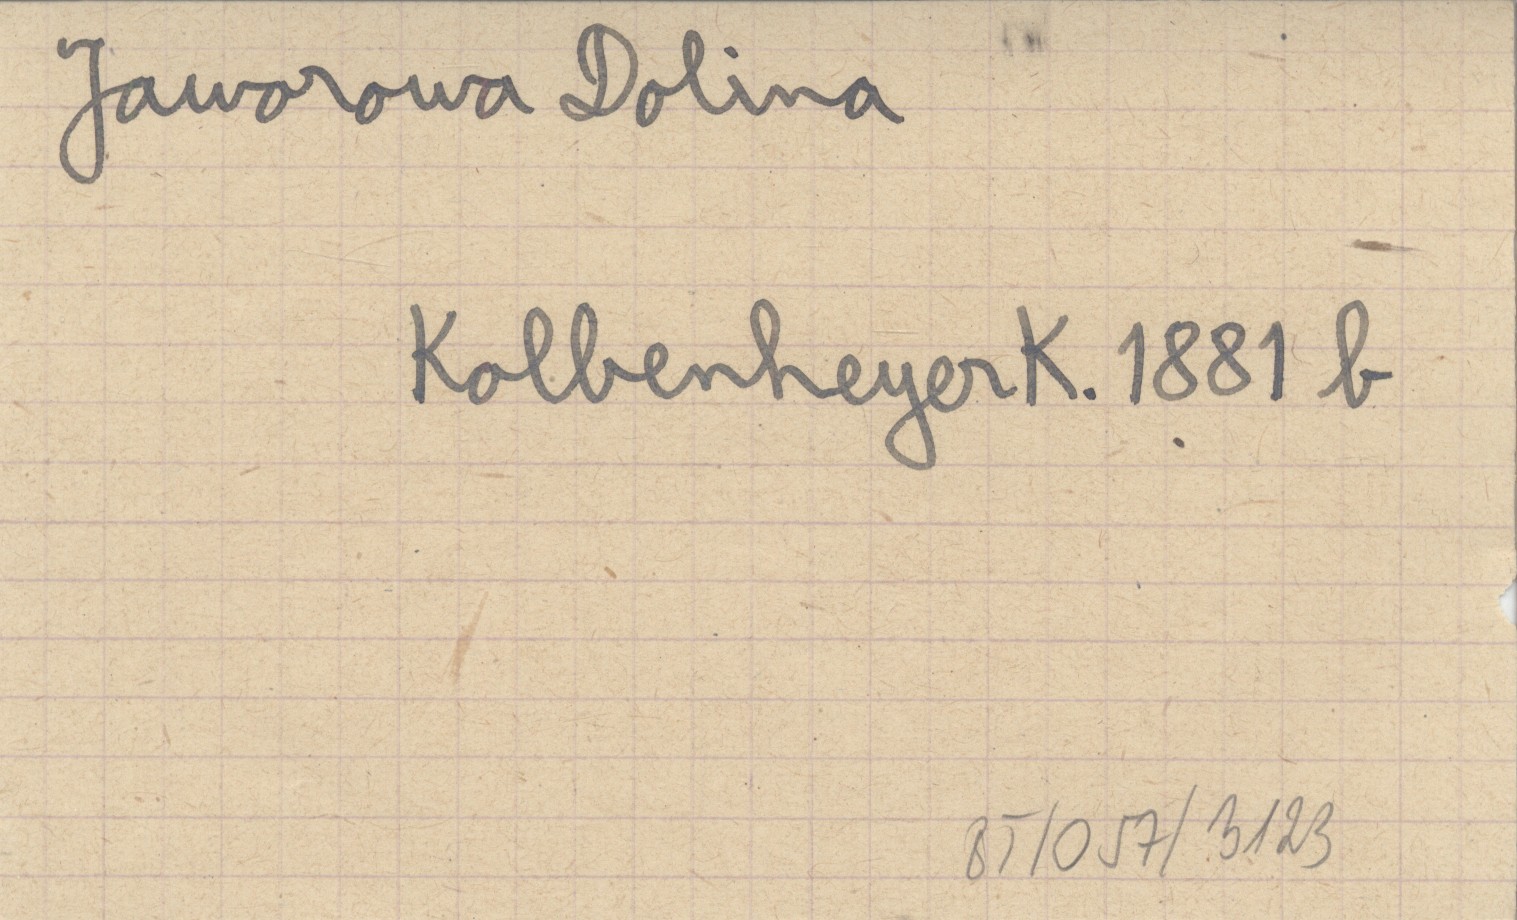 Jaworowa Dolina
Kolbenheyer K. 1881 b
BT/057/3123